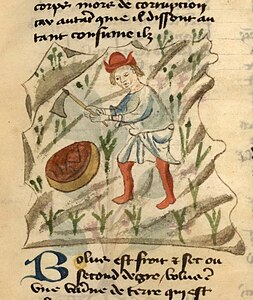 corps mors de corruption
car autant que il dissont au
tant consume ilz
Bolus est froit z sec ou
second degre / bolus
vne vainne de terre qui est